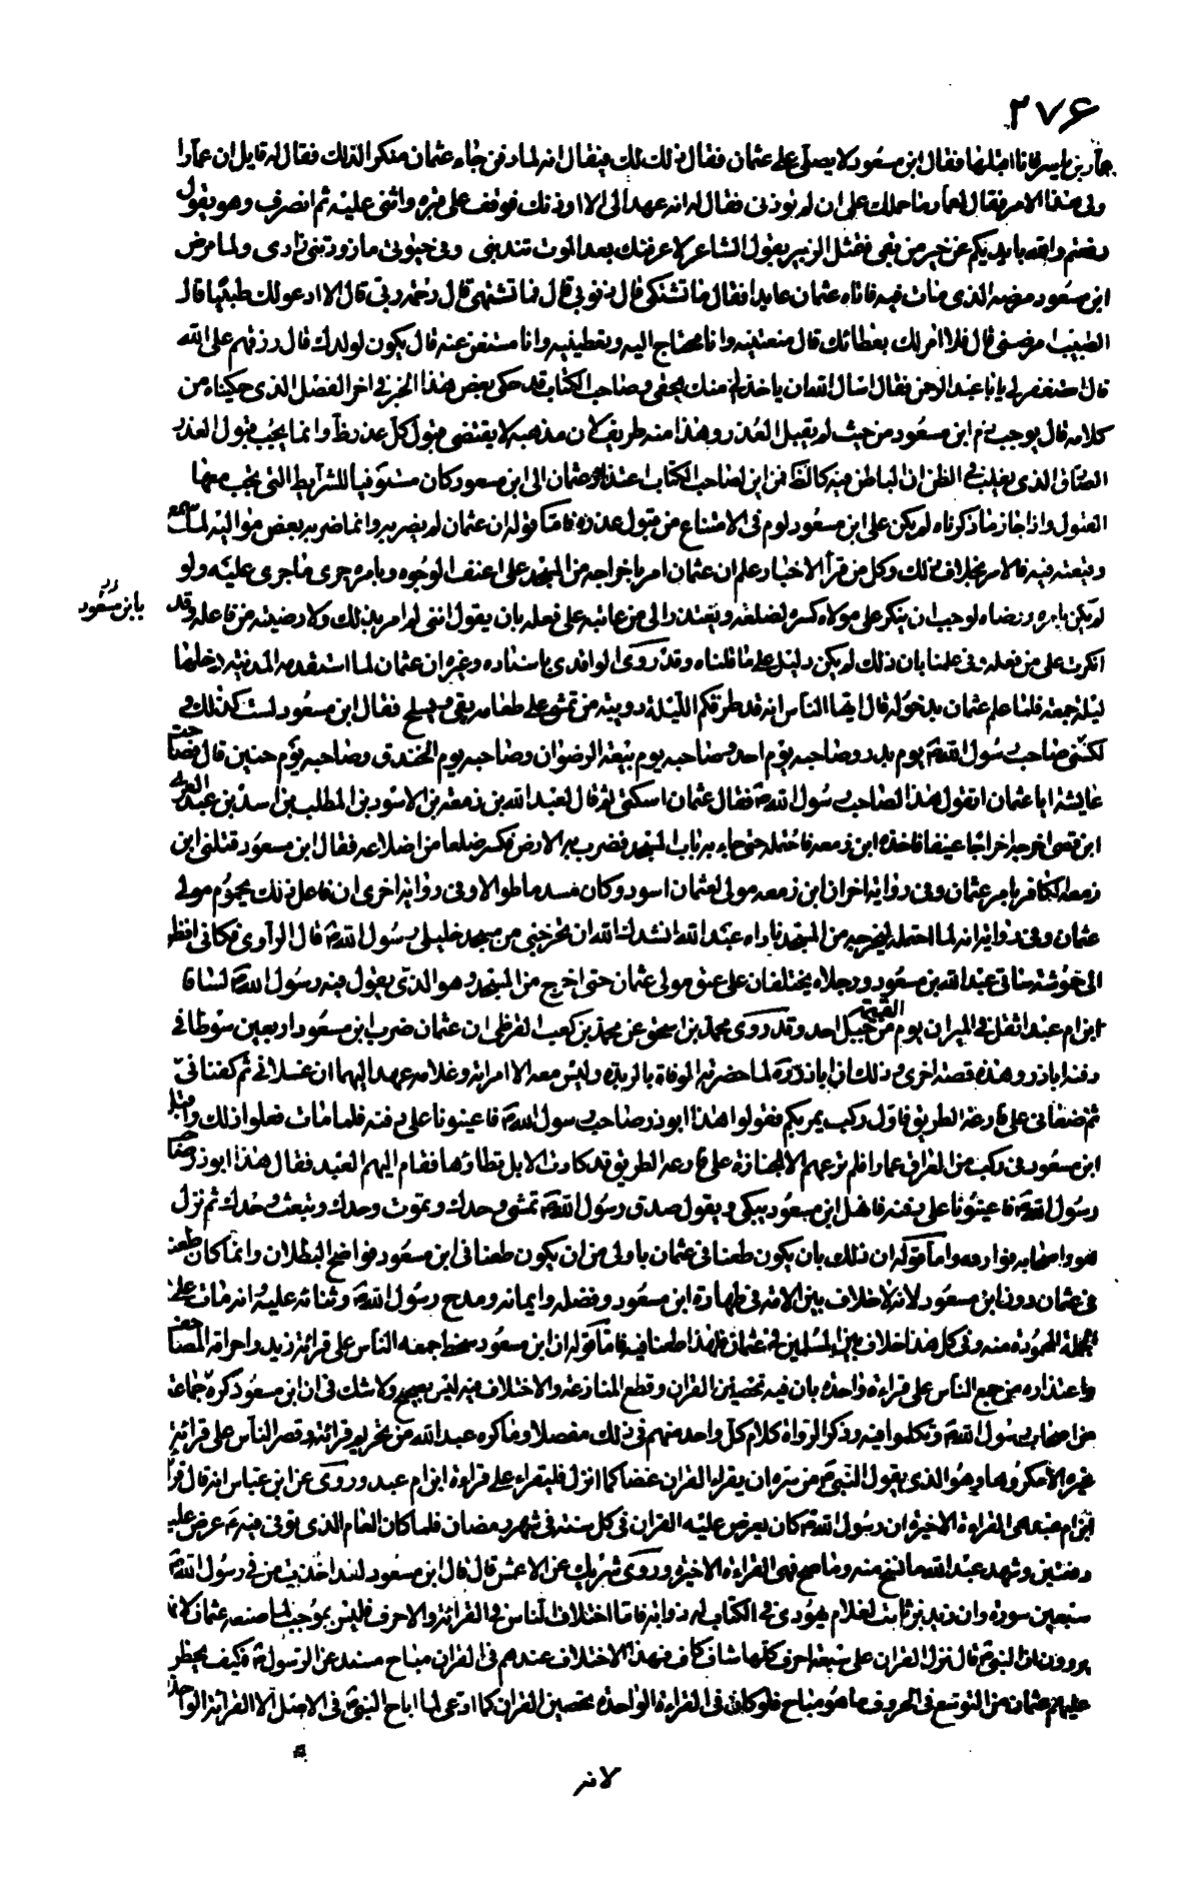 ۲۷۶
عمار بن ياسر فانا اقبلها فقال ابن مسعود لا يصلى على عثمان فقال ذلك لك فيقال انه لما دفن جاء عثمان منكرا لذلك فقال له قايل ان عمارا
ولى هذا الامر فقال لعمار ما حملك على ان لم توذنى فقال له انه عهد الى الا اوذنك فوقف على قبره واثنى عليه ثم انصرف وهو يقول
رفعتم والله بايديكم عن خير من بقى فتمثل الزبير بقول الشاعر لا عرفنك بعد الموت تندبنى وفى حيوتى ما زودتنى زادى ولما مرض
ابن مسعود مرضه الذى مات فيه فاتاه عثمان عايدا فقال ما تشتكى قال ذنوبى قال فما تشتهى قال رحمة ربى قال الا ادعو لك طبيبا قال
الطبيب امرضنى قال فلا امر لك بعطائك قال منعتنيه وانا محتاج اليه وتعطينيه وانا مستغن عنه قال يكون لولدك قال رزقهم على الله
قال استغفر لى يا ابا عبد الرحمن فقال اسال الله ان ياخذ لى منك بحقى وصاحب الكتاب قد حكى بعض هذا الخبر فى اخر الفصل الذى حكيناه من
كلامه قال يوجب ذم ابن مسعود من حيث لم يقبل العذر وهذا منه طريف لان مذهبه لا يقتضى قبول كل عذر ظاهر وانما يجب قبول العذر
الصادق الذى يغلب فى الظن ان الباطن فيه كالظاهر فمن اين لصاحب الكتاب ان اعتذار عثمان الى ابن مسعود كان مستوفيا للشرايط التى يجب معها
القبول واذا جاز ما ذكرناه لم يكن على ابن مسعود لوم فى الامتناع من قبول عذره فاما قوله ان عثمان لم يضربه وانما ضربه بعض مواليه لما سمع
وقيعته فيه فالامر بخلاف ذلك وكل من قرأ الاخبار علم ان عثمان امر باخراجه من المسجد على اعنف الوجوه وبامره جرى ما جرى عليه ولو
لم يكن بامره ورضاه لوجب ان ينكر على مولاه كسره لضلعه ويعتذر الى من عاتبه على فعله بان يقول اننى لم امر بذلك ولا رضيته من فاعله وقد
بابن مسعود
انكرت على من فعله وفى علمنا بان ذلك لم يكن دليل على ما قلناه وقد روى الواقدى باسناده وغيره ان عثمان لما استقدمه المدينة دخلها
ليلة جمعة فلما علم عثمان بدخوله قال ايها الناس انه قد طرقكم الليلة دويبة من تمشى على طعامه يقى ويسلح فقال ابن مسعود لست كذلك و
لكننى صاحب رسول الله ص يوم بدر وصاحبه يوم احد وصاحبه يوم بيعة الرضوان وصاحبه يوم الخندق وصاحبه يوم حنين قال فصاحت
عايشة ايا عثمان اتقول هذا لصاحب رسول الله ص فقال عثمان اسكتى ثم قال لعبد الله بن زمعة بن الاسود بن المطلب بن اسد بن عبد العزى
ابن قصى اخرجه اخراجا عنيفا فاخذه ابن زمعه فاحتمله حتى جاء به باب المسجد فضرب به الارض فكسر ضلعا من اضلاعه فقال ابن مسعود قتلنى ابن
زمعه الكافر بامر عثمان وفى رواية اخرى ان ابن زمعه مولى لعثمان اسود وكان مسدما طوالا وفى رواية اخرى ان فاعل ذلك يحموم مولى
عثمان وفى رواية انه لما احتمله ليخرجه من المسجد ناداه عبد الله انشدك الله ان تخرجنى من مسجد خليلى رسول الله ص قال الراوى فكانى انظر
الى حموشة ساقى عبد الله بن مسعود ورجلاه يختلفان على عنق مولى عثمان حتى اخرج من المسجد وهو الذى يقول فيه رسول الله ص لساقا
ابن ام عبد اثقل فى الميزان يوم القيمة من جبل احد وقد روى محمد بن اسحق عن محمد بن كعب القرظى ان عثمان ضرب ابن مسعود اربعين سوطا فى
دفنه اباذر وهذه قصة اخرى وذلك ان اباذر ره لما حضرته الوفاة بالربذة وليس معه الا امراته وغلامه عهد اليهما ان غسلانى ثم كفنانى
ثم ضعانى على قارعة الطريق فاول ركب يمر بكم فقولوا هذا ابوذر صاحب رسول الله ص فاعينونا على دفنه فلما مات فعلوا ذلك واقبل
ابن مسعود فى ركب من العراق عمارا فلم ترعهم الا الجنازة على قارعة الطريق قد كادت الابل تطاؤها فقام اليهم العبد فقال هذا ابوذر صاحب
رسول الله ص فاعينونا على دفنه فانهل ابن مسعود يبكى ويقول صدق رسول الله ص تمشى وحدك وتموت وحدك وتبعث وحدك ثم نزل
هو واصحابه فواروه واما قوله ان ذلك بان يكون طعنا فى عثمان باولى من ان يكون طعنا فى ابن مسعود فواضح البطلان وانما كان طعنا
فى عثمان دون ابن مسعود لانه لا خلاف بين الامة فى طهارة ابن مسعود وفضله وايمانه ومدح رسول الله ص وثنائه عليه وانه مات على
الجملة المحمودة منه وفى كل هذا خلاف بين المسلمين فى عثمان فلهذا طعنا فيه فاما قوله ان ابن مسعود سخط جمعه الناس على قراءة زيد واحراقه المصاحف
واعتذاره من جمع الناس على قراءة واحدة بان فيه تحصين القران وقطع المنازعة والاختلاف فيه ليس بصحيح ولا شك فى ان ابن مسعود كره جماعة
من اصحاب رسول الله ص وتكلموا فيه وذكر الرواة كلام كل واحد منهم فى ذلك مفصلا وما كره عبد الله من تحريم قرائته وقصر الناس على قرائة
غيره الا مكروها وهو الذى يقول النبى ص من سره ان يقراء القران غضا كما انزل فليقراء على قراءة ابن ام عبد وروى عن ابن عباس انه قال قراءة
ابن ام عبد هى القراءة الاخيرة ان رسول الله ص كان يعرض عليه القران فى كل سنة فى شهر رمضان فلما كان العام الذى توفى فيه ص عرض عليه
دفعتين وشهد عبد الله ما نسخ منه وما صح فهى القراءة الاخيرة وروى شريك عن الاعمش قال قال ابن مسعود لقد اخذت من فى رسول الله ص
سبعين سورة وان زيد بن ثابت لغلام يهودى فى الكتاب له ذوابة فاما اختلاف الناس فى القرائة والاحرف فليس بموجب لما صنعه عثمان لانهم
يروون ان النبى ص قال نزل القران على سبعة احرف كلها شاف كاف فهذا الاختلاف عندهم فى القران مباح مسند عن الرسول ص فكيف يحظر
عليهم عثمان من التوسع فى الحروف ما هو مباح فلو كان فى القراءة الواحدة تحصين القران كما ادعى لما اباح النبى ص فى الاصل الا القرائة الواحدة
لانه